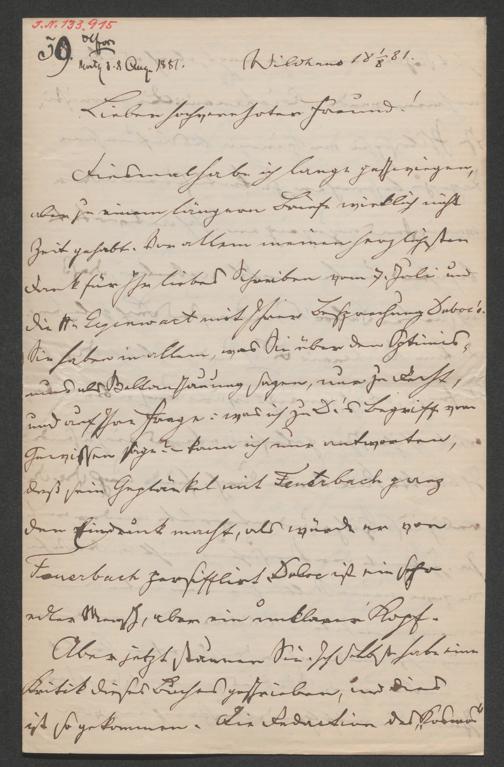 I.N. 133.915
59.
Aug. 1881.
Wildhaus 18 1/8 81.
Lieber hochverehrter Freund!
Diesmal habe ich lange geschwiegen,
aber zu einem längern Briefe wirklich nicht
Zeit gehabt. Vor allem meinen herzlichsten
Dank für Ihr liebes Schreiben vom 7. Juli und
die Gegenwart mit Ihrer Besprechung Duboc's.
Sie haben in allem, was Sie über den Optimis-
mus als Weltanschauung sagen, nur zu Recht,
und auf Ihre Frage: was ich zu D's Begriff vom
Gewissen sage – kann ich nur antworten,
daß sein Geplänkel mit Feuerbach ganz
den Eindruck macht, als würde er von
Feuerbach persifflirt. Duboc ist ein sehr
edler Mensch, aber ein unklarer Kopf.
Aber jetzt staunen Sie. Ich selbst habe eine
Kritik dieses Buches geschrieben, und dies
ist so gekommen. Die Redaction des „Kosmos"